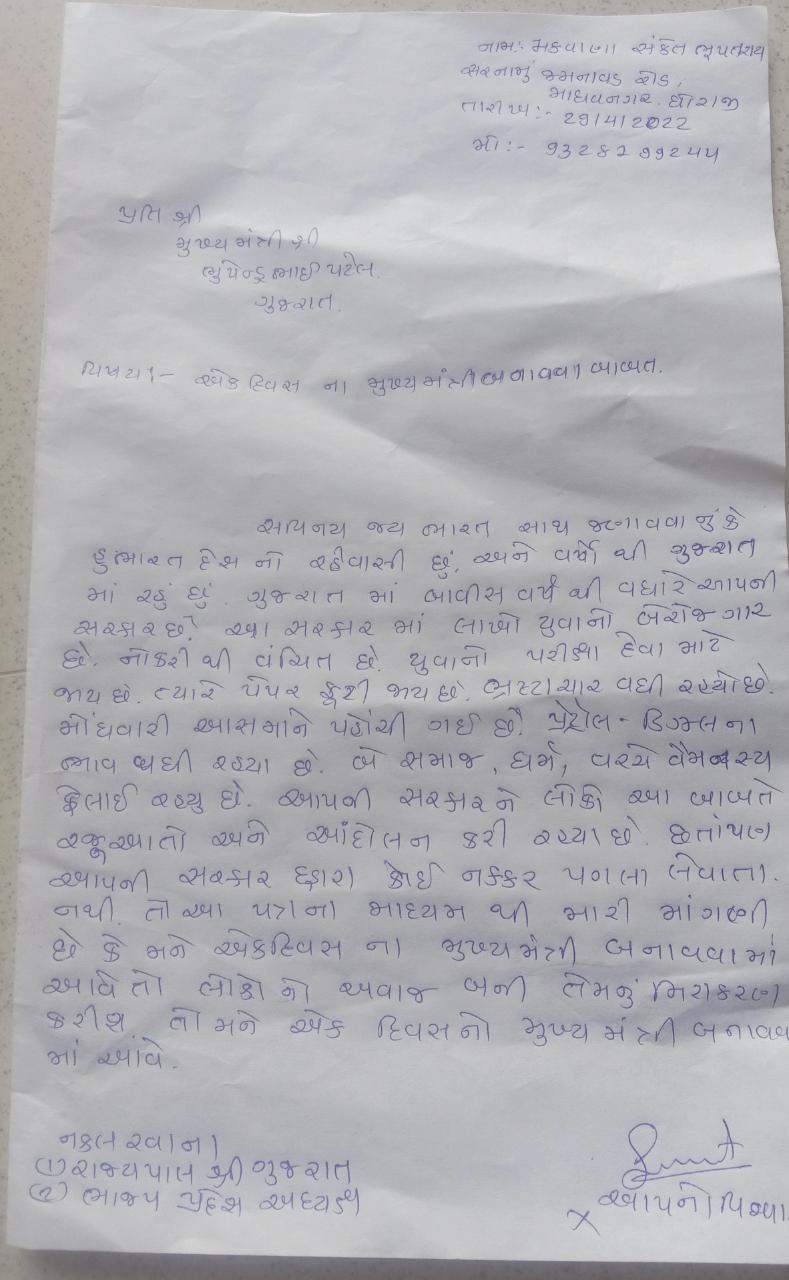 નામ:- મકવાણા સંકેત ભુપતરાય
સરનામું જમનાવડ રોડ,
માધવનગર. ધોરાજી
તારીખ:- 29/4/2022
મો:- 9328299244
પ્રતિ શ્રી
મુખ્ય મંત્રી શ્રી
ભુપેન્દ્રભાઈ પટેલ.
ગુજરાત.
વિષય:- એક દિવસ ના મુખ્ય મંત્રી બનાવવા બાબત.
સવિનય જય ભારત સાથ જણાવવા નું કે
હું ભારત દેશ નો રહેવાસી છું. અને વર્ષો થી ગુજરાત
માં રહું છું. ગુજરાત માં બાવીસ વર્ષ થી વધારે આપની
સરકાર છે. આ સરકાર માં લાખો યુવાનો બેરોજગાર
છે. નોકરી થી વંચિત છે. યુવાનો પરીક્ષા દેવા માટે
જાય છે. ત્યારે પેપર ફુટી જાય છે. ભ્રષ્ટાચાર વધી રહ્યો છે.
મોંઘવારી આસમાને પહોંચી ગઈ છે. પેટ્રોલ - ડિઝલ ના
ભાવ વધી રહ્યા છે. બે સમાજ, ધર્મ, વચ્ચે વૈમનસ્ય
ફેલાઈ રહ્યુ છે. આપની સરકાર ને લોકો આ બાબતે
રજૂઆતો અને આંદોલન કરી રહ્યા છે. છતાંપણ
આપની સરકાર દ્વારા કોઈ નક્કર પગલા લેવાતા.
નથી. તો આ પત્રના માધ્યમ થી મારી માંગણી
છે કે મને એકદિવસ ના મુખ્ય મંત્રી બનાવવામાં
આવે તો લોકો નો અવાજ બની તેમનું નિરાકરણ
કરીશ તો મને એક દિવસ નો મુખ્ય મંત્રી બનાવવ
માં આવે.
નકલ રવાના
(1) રાજ્યપાલ શ્રી ગુજરાત
(2) ભાજપ પ્રદેશ અધ્યક્ષ
X આપનો વિશ્વા